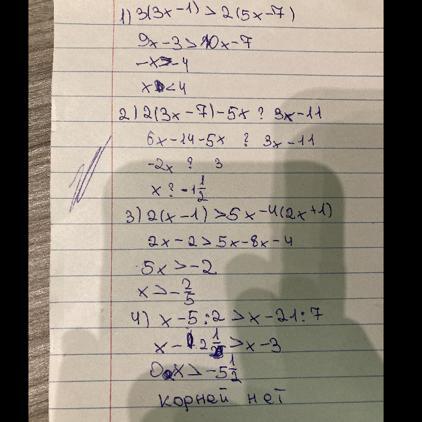 1) 3(3x-1)>2(5x-7)
9x-3>10x-7
-x>-4
x<4
2) 2(3x-7)-5x ? 3x-11
6x-14-5x ? 3x-11
-2x ? 3
x ? -1 1/2
3) 2(x-1)>5x-4(2x+1)
2x-2>5x-8x-4
5x>-2
x>-2/5
4) x-5:2>x-21:7
x-2 1/2>x-3
0x>-5 1/2
корней нет